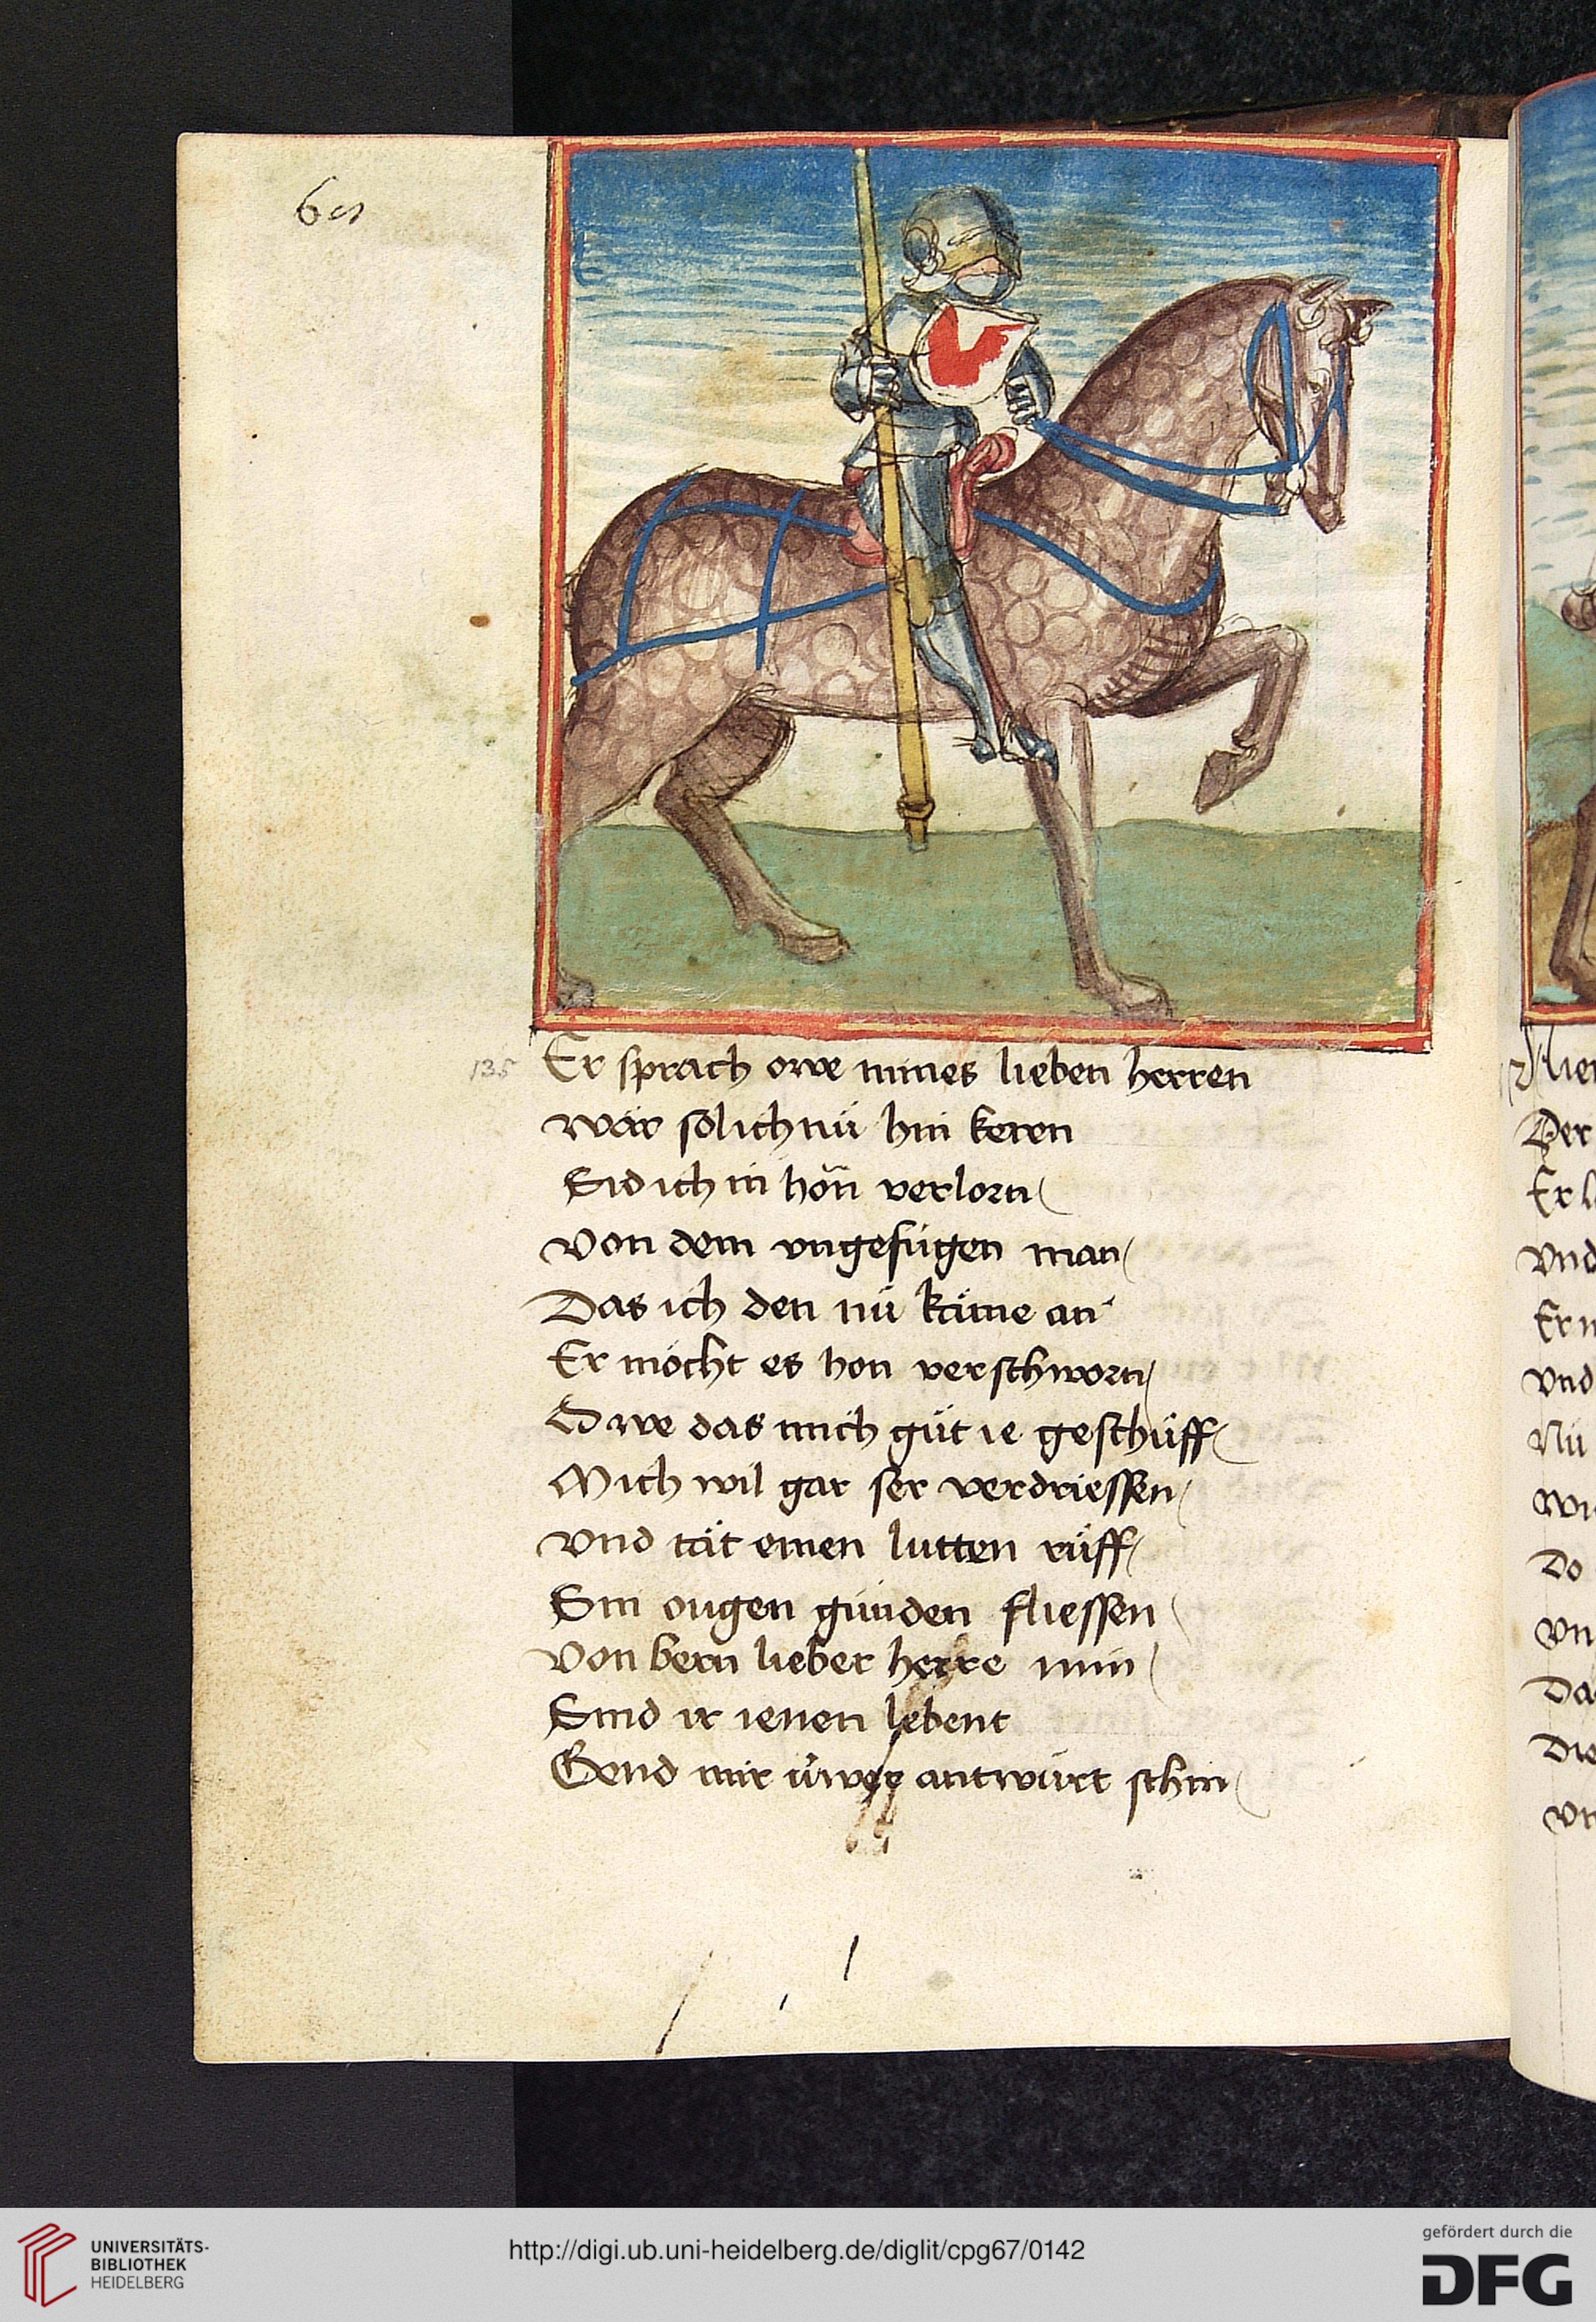 135
Er sprach owe mines lieben herren
wär sol ich nü hin keren
Sid ich in hön verlorn
von dem vngefügen man
Das ich den nü käme an
Er möcht es hon verschworn
Owe das mich güt ie geschüff
Mich wil gar ser verdriessen
vnd tät einen lutten rüff
Sin ougen günden fliessen
von bern lieber herre min
Sind ir ienen lebent
Gend mir üwer antwürt schin
Der
vnd
Er
vnd
Nü
Do
UNIVERSITÄTS-
BIBLIOTHEK
HEIDELBERG
http://digi.ub.uni-heidelberg.de/diglit/cpg67/0142
gefördert durch die
DFG